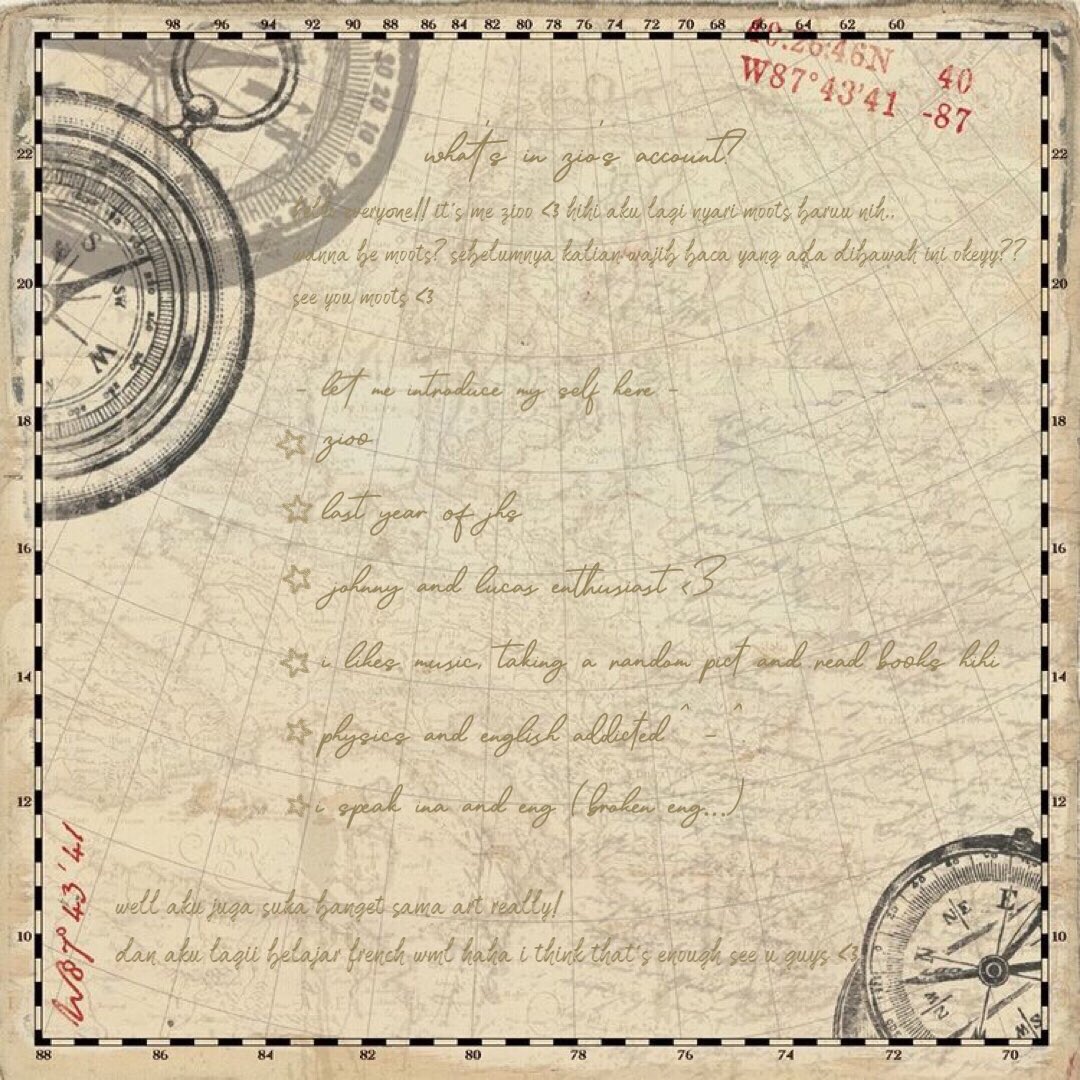 98 96 94 92 90 88 86 84 82 80 78 76 74 72 70 68 66 64 62 60
40:26:46N 40
W87°43'41 -87
what's in zio's account?
hello everyone!! it's me zioo <3 hihi aku lagi nyari moots baruu nih..
wanna be moots? sebelumnya kalian wajib baca yang ada dibawah ini okeyy??
see you moots <3
- let me introduce my self here -
zioo
last year of jhs
johnny and lucas enthusiast <3
i likes music, taking a random pict and read books hihi
physics and english addicted ^ - ^
i speak ina and eng (broken eng...)
well aku juga suka banget sama art really!
dan aku lagii belajar french wml haha i think that's enough see u guys <3
W87°43'41
22 20 18 16 14 12 10
22 20 18 16 14 12 10
30 20 10 0
S
SW
W
E
NE
N
NW
W
88 86 84 82 80 78 76 74 72 70